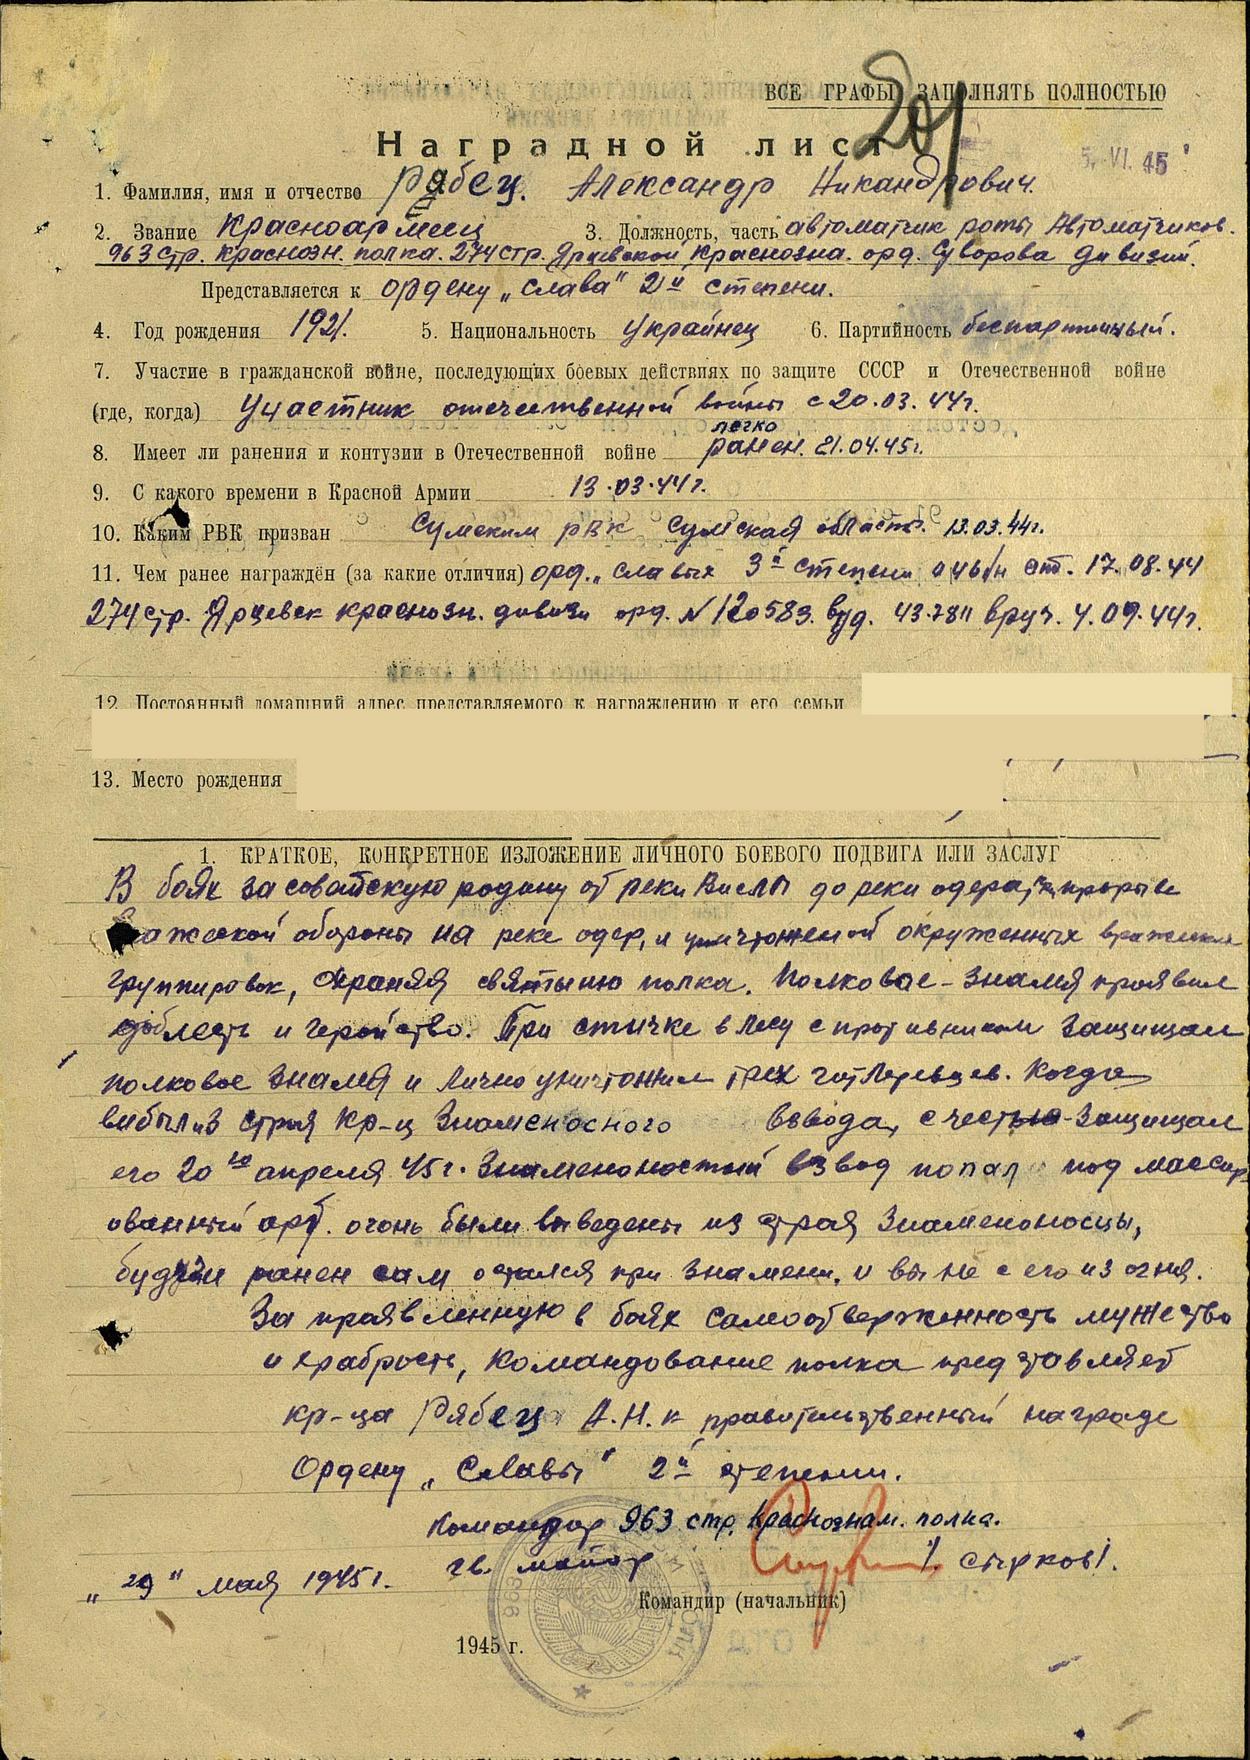 ВСЕ ГРАФЫ ЗАПОЛНЯТЬ ПОЛНОСТЬЮ
201
Наградной лист
5. VI. 45
1. Фамилия, имя и отчество Рябец. Александр Никандрович.
2. Звание Красноармеец 3. Должность, часть автоматчик роты Автоматчиков.
963 стр. краснозн. полка. 274 стр. Ярцевской Краснозна. орд. Суворова дивизии.
Представляется к ордену „Слава" 2й степени.
4. Год рождения 1921. 5. Национальность украинец 6. Партийность беспартийный.
7. Участие в гражданской войне, последующих боевых действиях по защите СССР и Отечественной войне
(где, когда) Участник отечественной войны с 20.03.44г.
легко
8. Имеет ли ранения и контузии в Отечественной войне ранен. 21.04.45г.
9. С какого времени в Красной Армии 13.03.44г.
10. Каким РВК призван Сумским рвк Сумская область. 13.03.44г.
11. Чем ранее награждён (за какие отличия) орд. „славы 3й степени 046/н от. 17.08.44
274 стр. Ярцевск краснозн. дивизи орд. N 120583. вуд. 43.7811 вруч. 4.09.44г.
12. Постоянный домашний адрес представляемого к награждению и его семьи
13. Место рождения
1. КРАТКОЕ, КОНКРЕТНОЕ ИЗЛОЖЕНИЕ ЛИЧНОГО БОЕВОГО ПОДВИГА ИЛИ ЗАСЛУГ
В боях за советскую родину от реки Вислы до реки одера, прорыве
вражеской обороны на реке одер, и уничтожений окруженных вражеских
группировок, охраняя святыню полка. Полковое - знамя проявил
доблесть и геройство. При стычке в лесу с противником защищал
полковое знамя и лично уничтожил трех гитлеревцев. Когда
выбыл из строя кр-ц Знаменосного взвода, с честью - защищал
его 20го апреля 45г. Знаменоностный взвод попал под массир
ованный арт. огонь были выведены из строя знаменоносцы,
будучи ранен сам остался при знамени, и вынес его из огня.
За проявленную в боях самоотверженность мужество
и храбрость, командование полка представляет
кр-ца Рябец А.Н. к правительственный награде
Ордену „Славы" 2й степени.
Командир 963 стр. Краснознам. полка.
гв. майор /. сырков/.
„29" мая 1945г.
Командир (начальник)
1945 г.